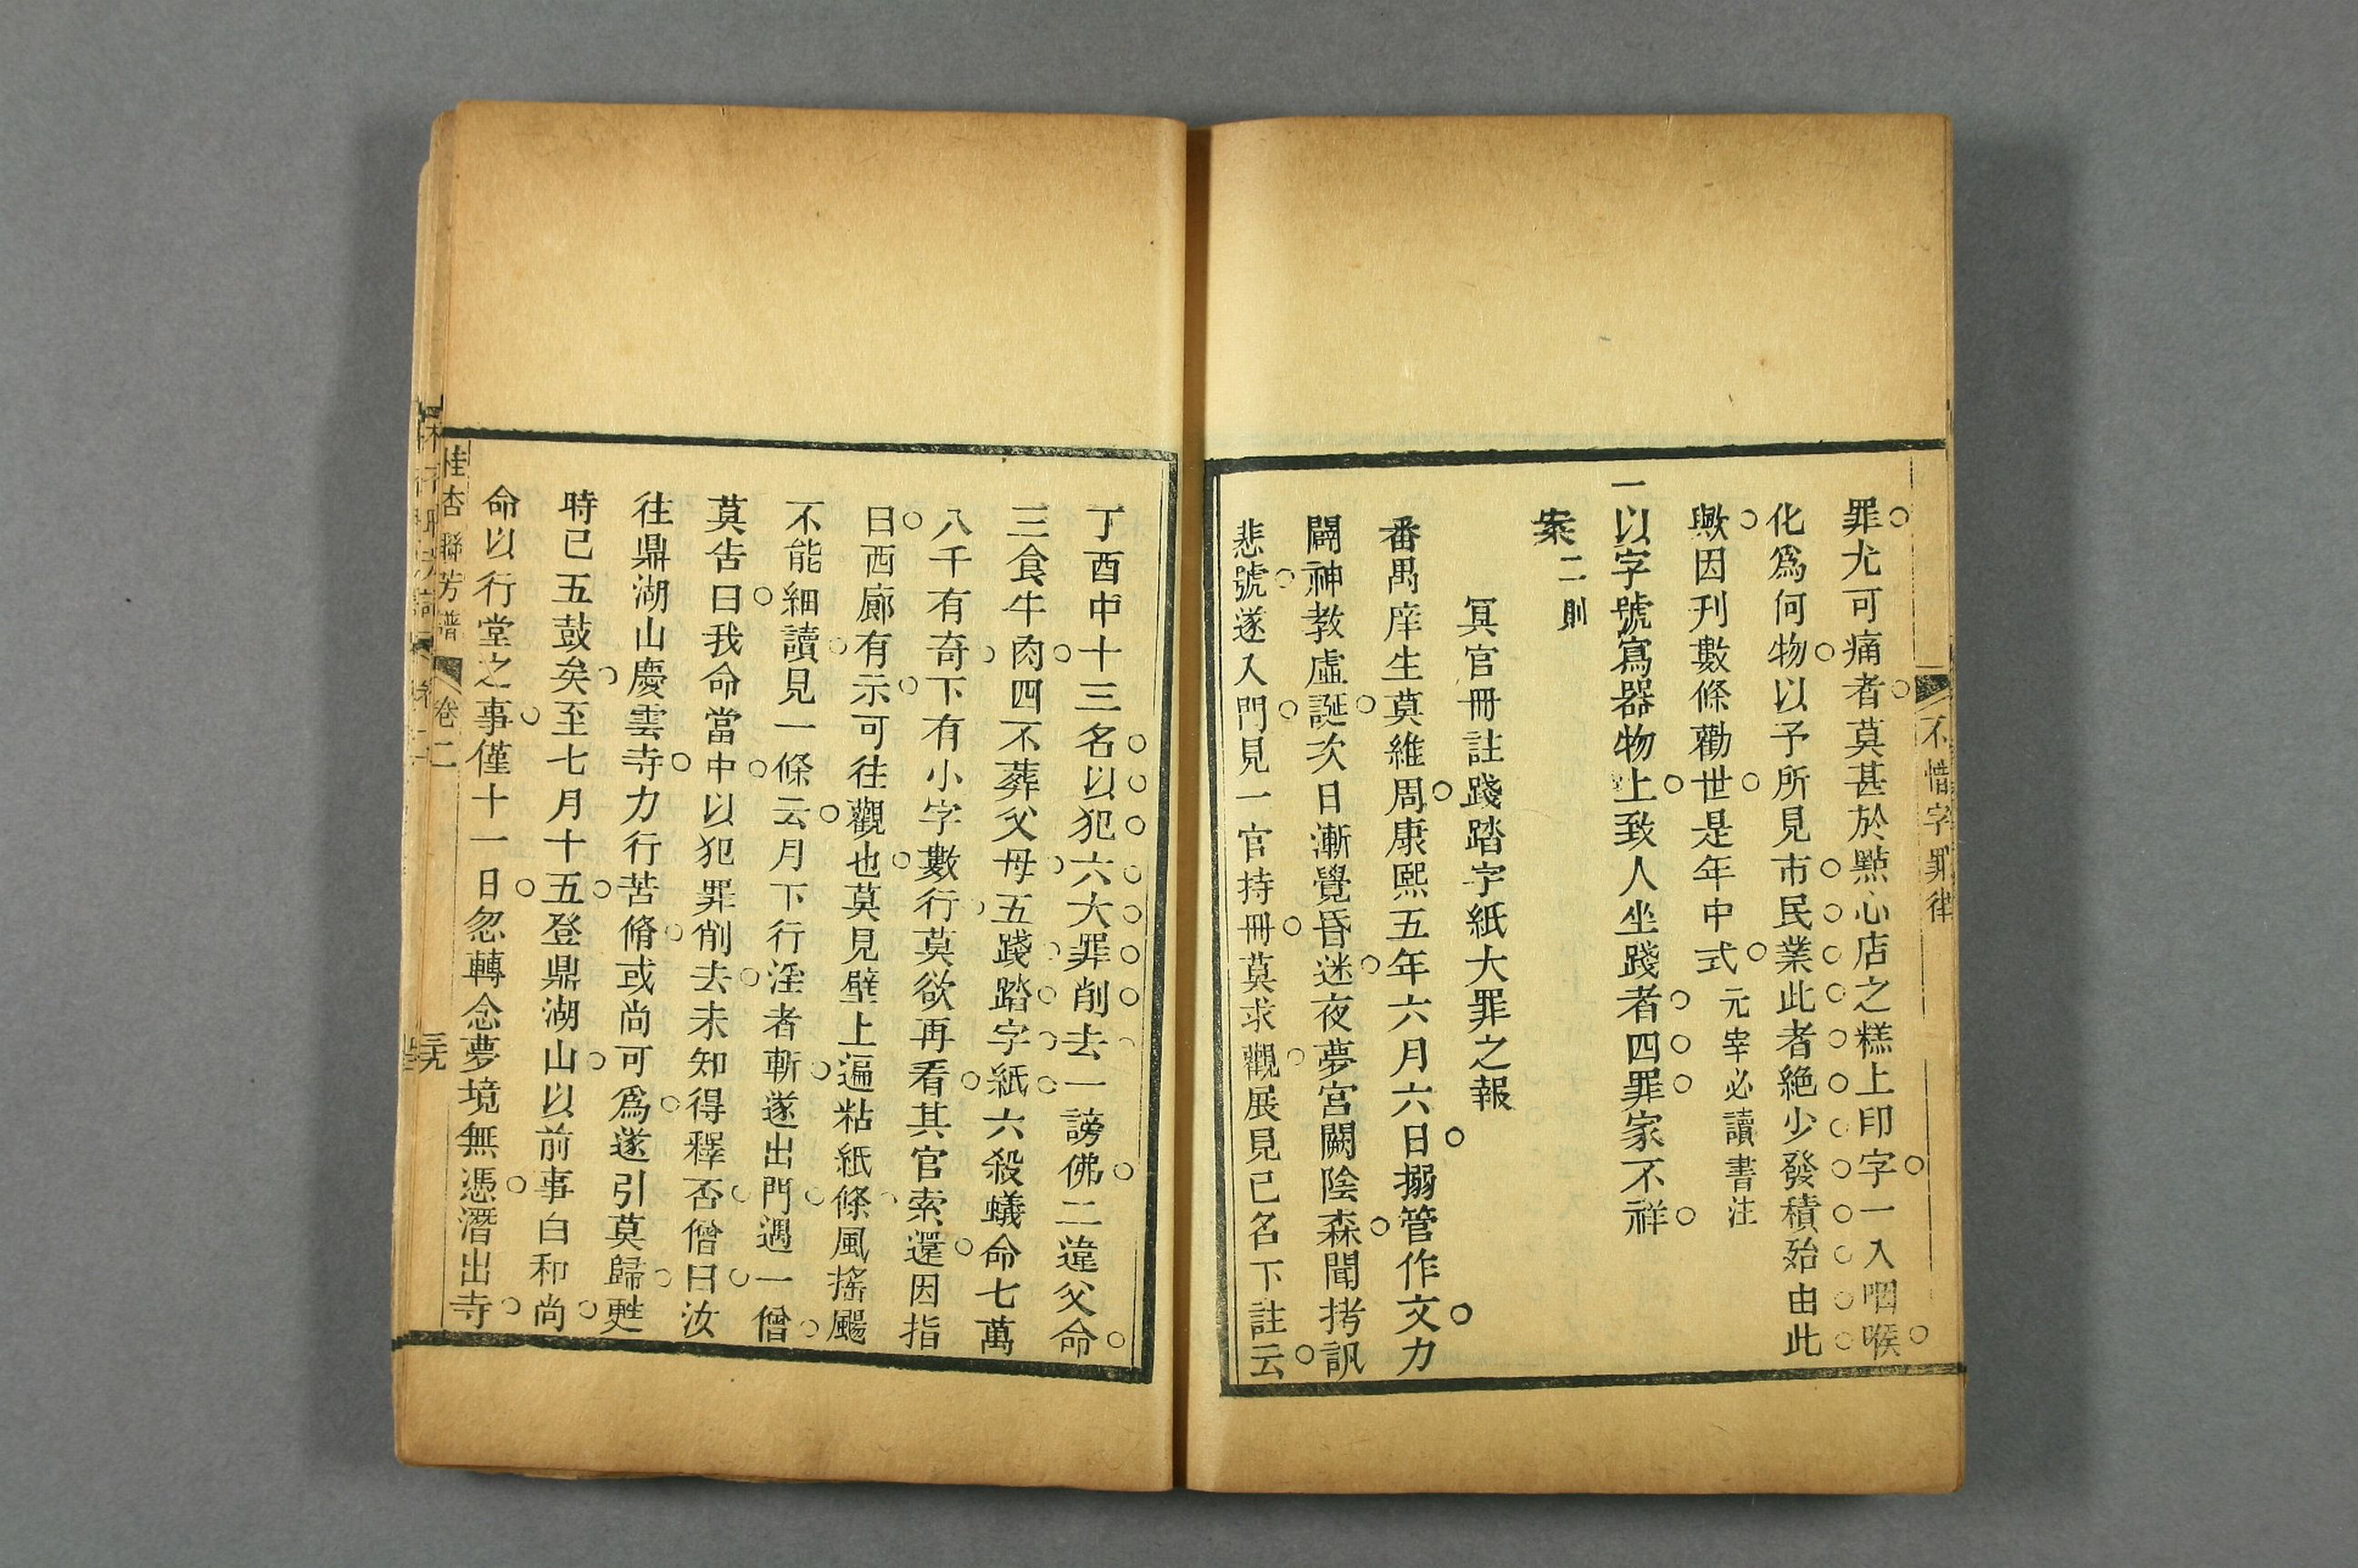 不惜字罪律
罪尤可痛者莫甚於點心店之糕上印字一入咽喉
化爲何物以予所見市民業此者絶少發積殆由此
歟因刊數條勸世是年中式元宰必讀書注
一以字號寫器物上致人坐踐者四罪家不祥
案二則
冥官冊註踐踏字紙大罪之報
番禺庠生莫維周康熙五年六月六日搦管作文力
闢神教虛誕次日漸覺昏迷夜夢宮闕陰森聞拷訊
悲號遂入門見一官持冊莫求觀展見己名下註云
丁酉中十三名以犯六大罪削去一謗佛二違父命
三食牛肉四不葬父母五踐踏字紙六殺蟻命七萬
八千有奇下有小字數行莫欲再看其官索還因指
曰西廊有示可往觀也莫見壁上遍粘紙條風搖颺
不能細讀見一條云月下行淫者斬遂出門遇一僧
莫告曰我命當中以犯罪削去未知得釋否僧曰汝
往鼎湖山慶雲寺力行苦脩或尚可爲遂引莫歸甦
時已五鼓矣至七月十五登鼎湖山以前事白和尚
命以行堂之事僅十一日忽轉念夢境無憑潛出寺
桂杏聯芳譜 卷二 三九